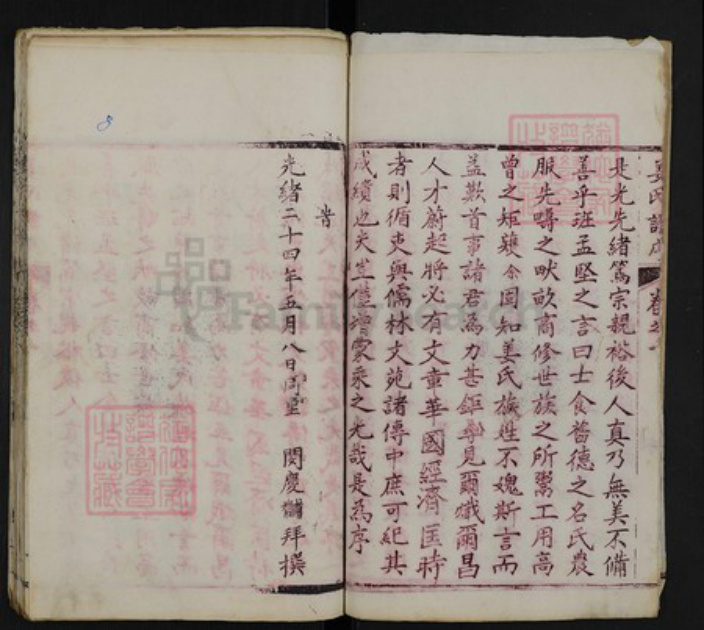 姜氏譜
是光先緒篤宗親裕後人真乃無美不備
善乎班孟堅之言曰士食舊德之名氏農
服先疇之畎畝商修世族之所鬻工用高
曾之矩矱余固知姜氏族姓不媿斯言而
益歎首事諸君為力甚鉅寧見爾熾爾昌
人才蔚起將必有文章華國經濟匡時
者則循吏與儒林文苑諸傳中庶可紀其
成績也夫豈僅增蒙乘之光哉是為序
旹
光緒二十四年五月八日
閔慶 拜撰
8
FamilySearch